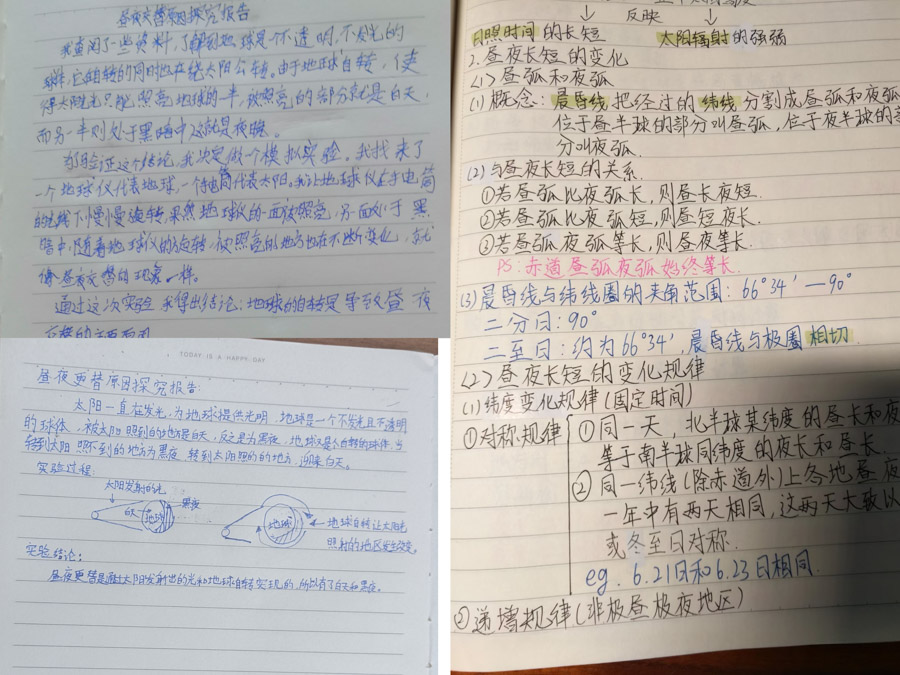 昼夜交替原因探究报告
我查阅了一些资料,了解到地球是个不透明,不发光的
球体,它自转的同时也在绕太阳公转。由于地球自转,使
得太阳光只能照亮地球的一半,被照亮的部分就是白天,
而另一半则处于黑暗中这就是夜晚。
为了验证这个结论,我决定做个模拟实验。我找来了
一个地球仪代表地球,一个手电筒代表太阳。我让地球仪在手电筒
的光线下慢慢旋转,果然地球仪的一面被照亮,另一面处于黑
暗中,随着地球仪的旋转,被照亮的地方也在不断变化,就
像昼夜交替的现象一样。
通过这次实验,我得出结论:地球的自转是导致昼夜
交替的主要原因
TODAY IS A HAPPY DAY
昼夜更替原因探究报告:
太阳一直在发光,为地球提供光明,地球是一个不发光且不透明
的球体,被太阳照到的地方是白天,反之是为黑夜,地球又是个自转的球体,当
转到太阳照不到的地方为黑夜,转到太阳照的的地方,迎来白天。
实验过程:
太阳发射的光
黑夜
白天
地球
地球
地球自转让太阳光
照射的地区发生改变。
实验结论:
昼夜更替是通过太阳发射出的光和地球自转实现的,所以有了白天和黑夜。
反映
日照时间的长短 太阳辐射的强弱
2.昼夜长短的变化
<1>昼弧和夜弧
(1)概念:晨昏线把经过的纬线分割成昼弧和夜弧
位于昼半球的部分叫昼弧,位于夜半球的部
分叫夜弧.
(2)与昼夜长短的关系.
①若昼弧比夜弧长,则昼长夜短.
②若昼弧比夜弧短,则昼短夜长.
③若昼弧夜弧等长,则昼夜等长.
PS:赤道昼弧夜弧始终等长.
(3)晨昏线与纬线圈的夹角范围:66°34′—90°
二分日:90°
二至日:约为66°34′,晨昏线与极圈相切.
<2>昼夜长短的变化规律
(1)纬度变化规律(固定时间)
①对称规律
①同一天,北半球某纬度的昼长和夜
等于南半球同纬度的夜长和昼长.
②同一纬线(除赤道外)上各地昼夜
一年中有两天相同,这两天大致以
或冬至日对称.
eg.6.21日和6.23日相同.
②递增规律(非极昼极夜地区)